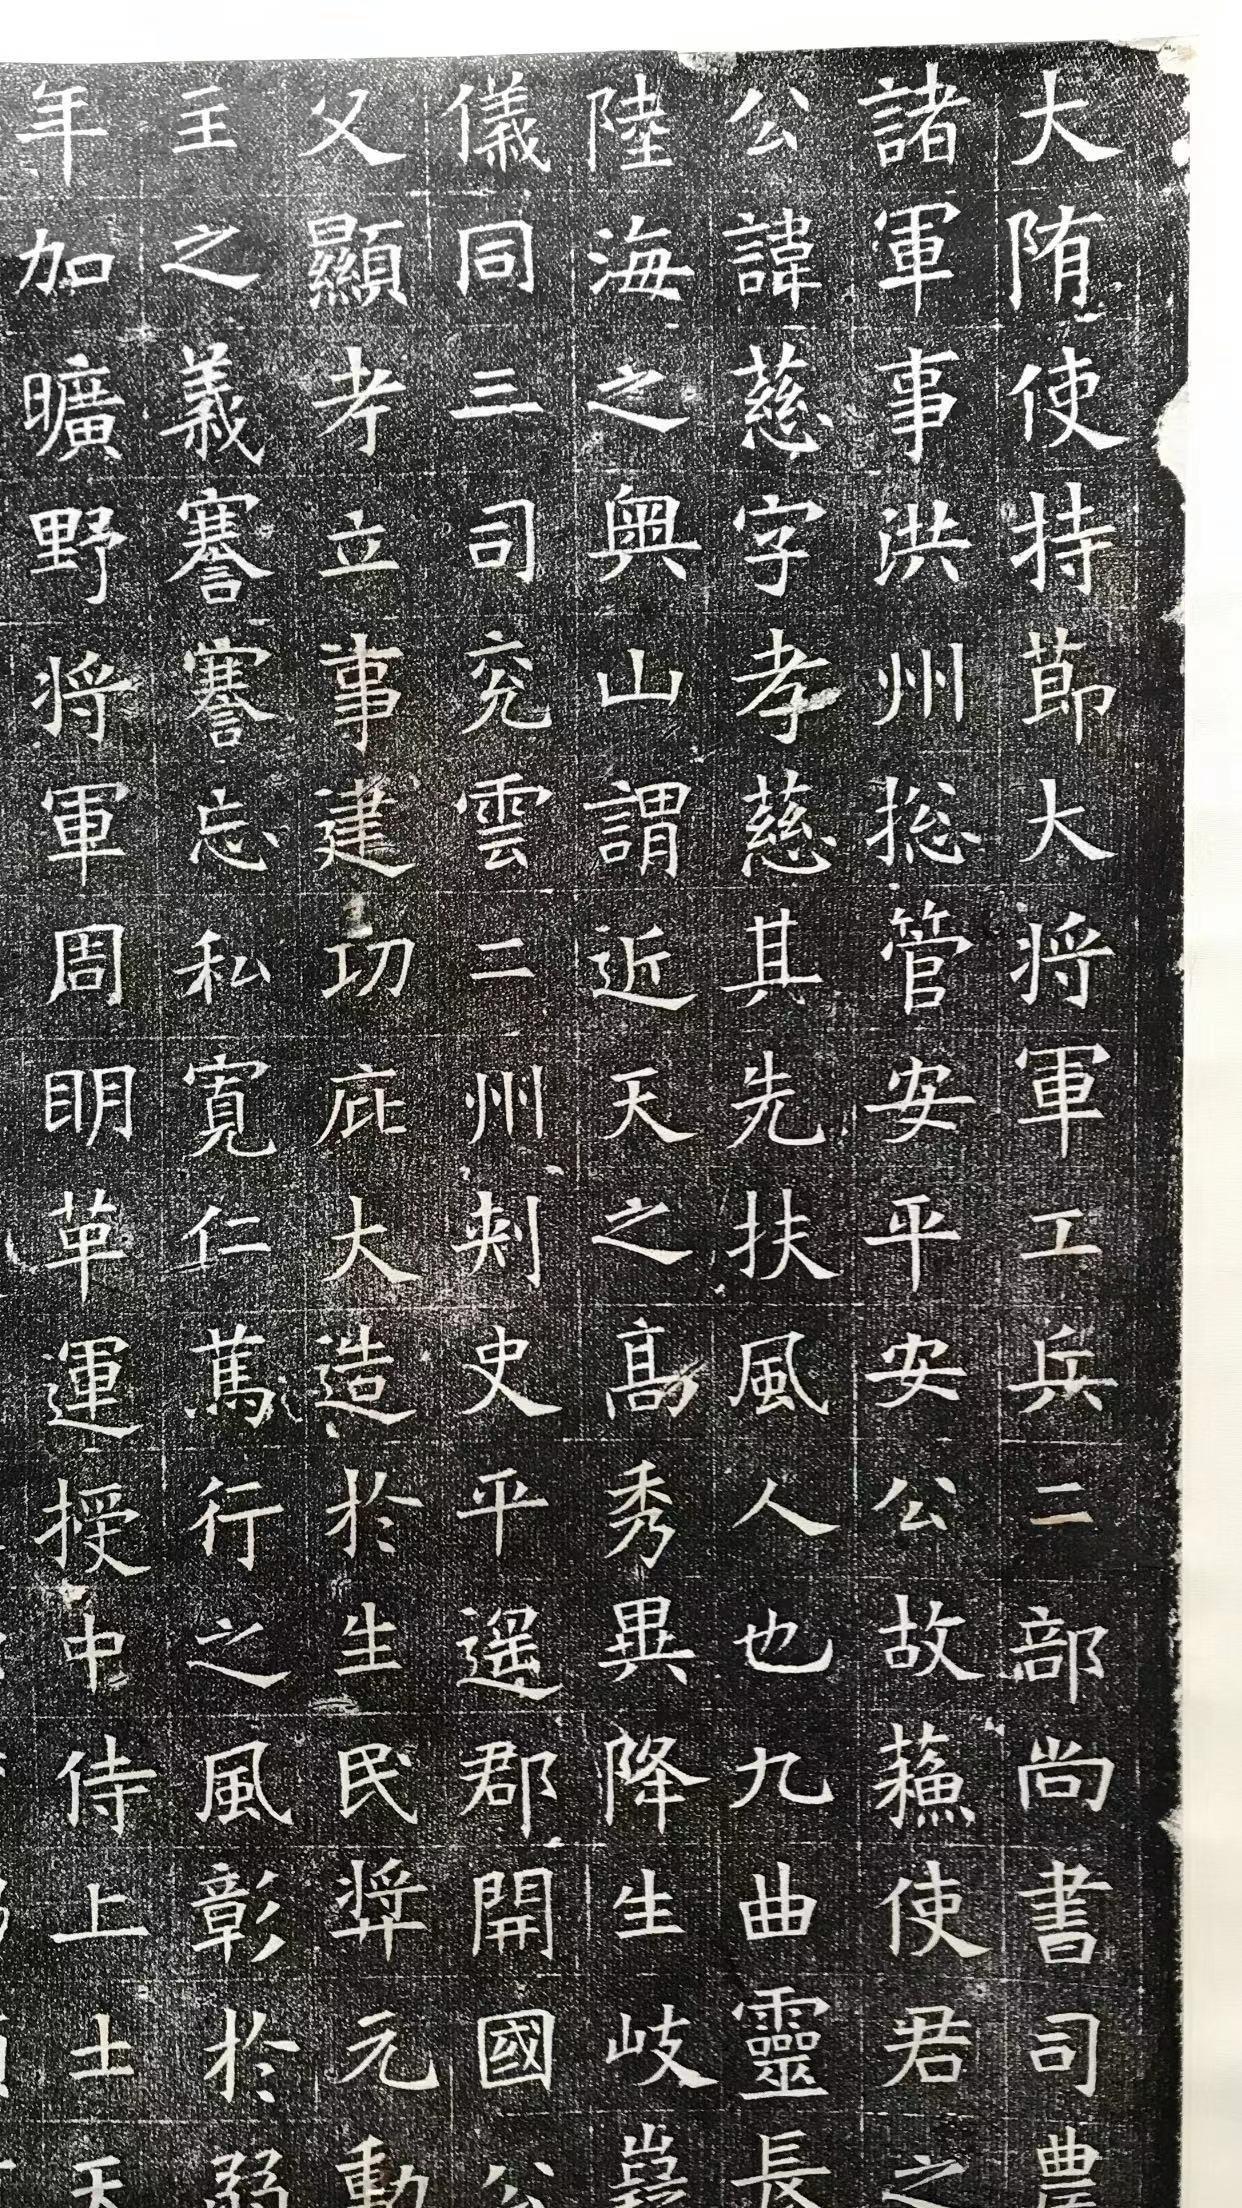 大隋使持節大將軍工兵二部尚書司農
諸軍事洪州捴管安平安公故蘓使君之
公諱慈字孝慈其先扶風人也九曲靈長
陸海之奥山謂近天之髙秀異降生岐嶷
儀同三司兖雲二州刺史平遥郡開國公
父顯考立事建功庇大造於生民奨元動
主之義謇謇忘私寛仁篤行之風彰於弱
年加曠野将軍周明革運授中侍上士天